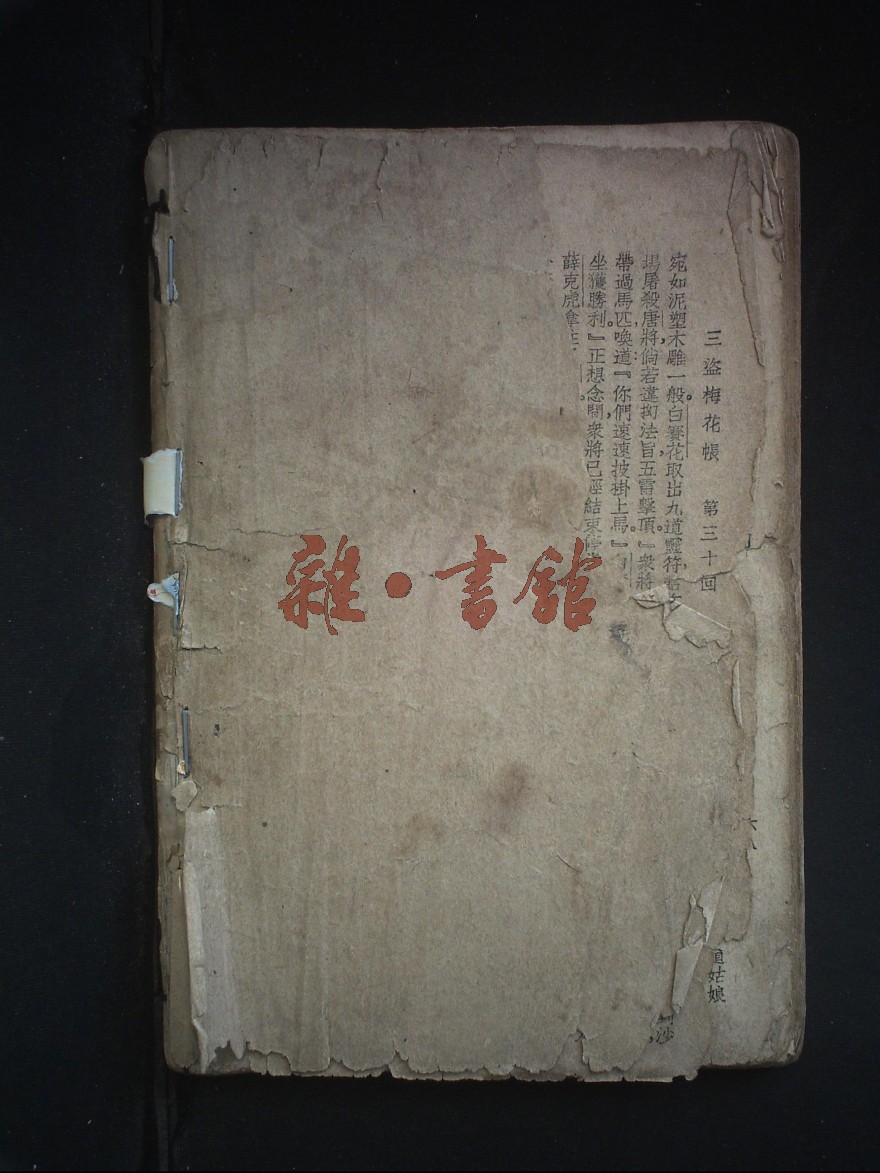 三盜梅花帳 第三十回
宛如泥塑木雕一般。白賽花取出九道靈符
場屠殺唐將,倘若違拗法旨,五雷擊頂。』衆將
帶過馬匹,喚道:『你們速速披掛上馬。』
坐獲勝利。』正想念間,衆將已經結束
薛克虎拿
姑娘
沙
雜·書館